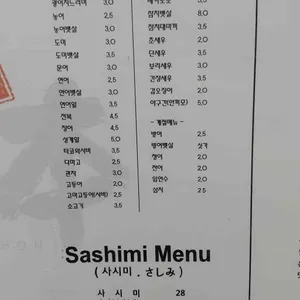 광어지느러미 3.0
농어 2.5
농어뱃살 3.0
도미 3.0
도미뱃살 3.5
문어 3.0
연어 2.5
연어뱃살 3.0
연어알 3.5
전복 4.5
청어 4.5
성게알 5.0
타코와사비 3.5
다마고 2.5
관자 3.0
고등어 2.0
고마고등어(사비) 2.5
소고기 3.5
5.0
참치뱃살 8.0
참치대마끼 3.5
초새우 2.0
단새우 3.5
보리새우 3.0
간장새우 2.0
갑오징어 2.0
아구간(안끼모) 5.0
- 계절메뉴 -
방어 2.5
방어뱃살 싯가
청어 2.0
전어 2.0
임연수 2.0
삼치 2.5
Sashimi Menu
( 사시미 . さしみ )
사 시 미 28